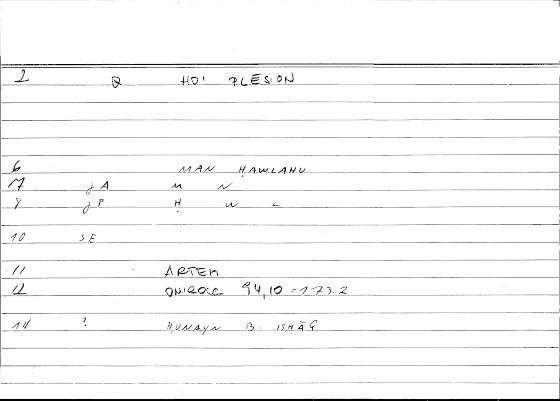 2 Q HOI PLESION
6 MAN ḤAWLAHU
7 JA M N
8 JP Ḥ W L
10 SE
11 ARTEM
12 ONIROC 94,10 = 173.2
14 ? ḤUNAYN B. ISḤĀQ